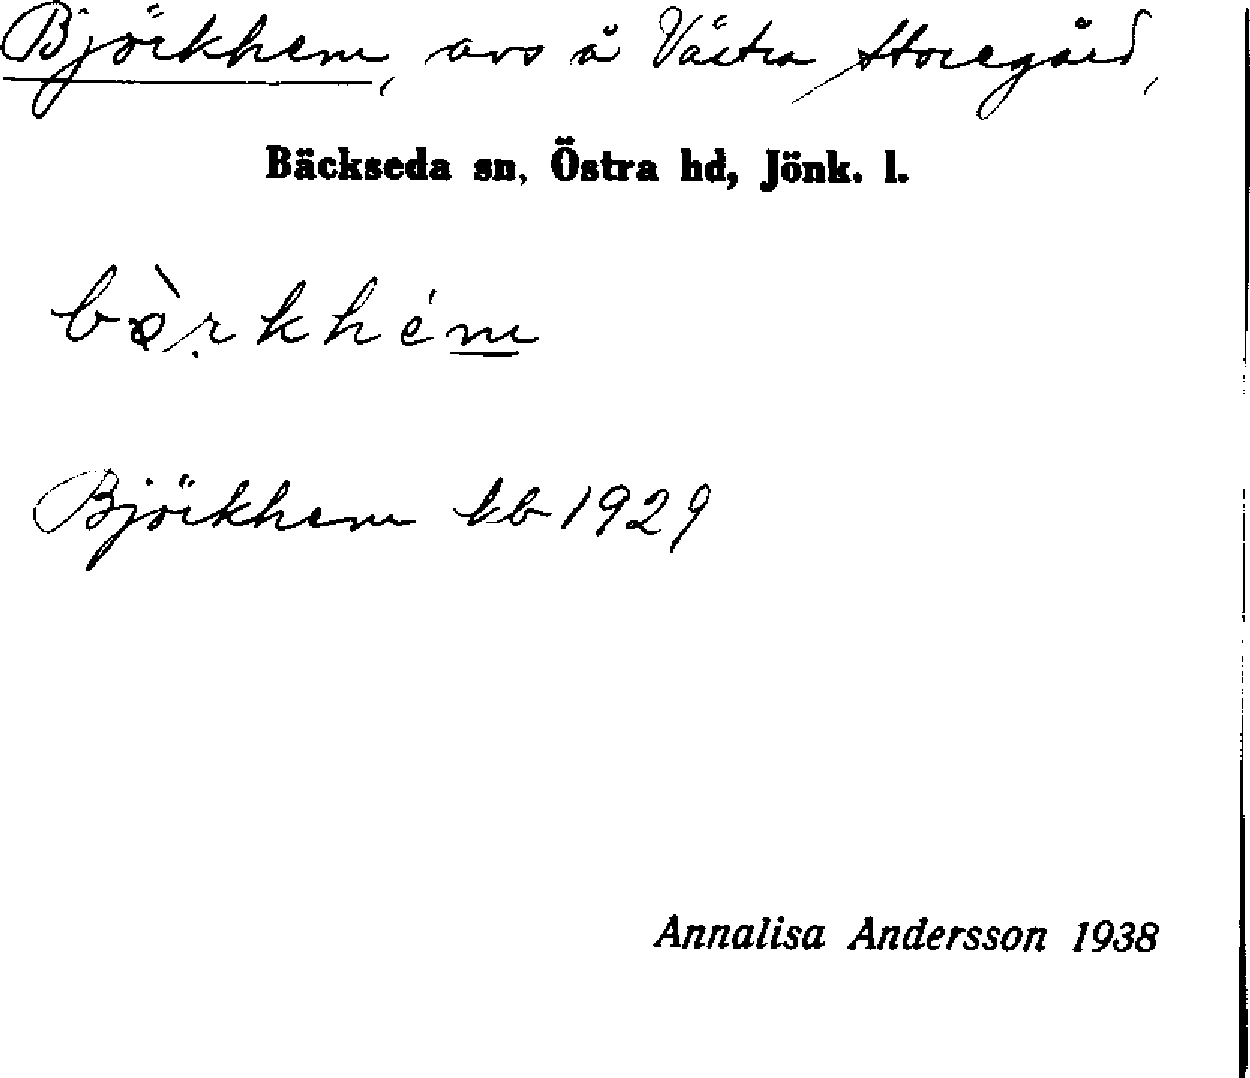 Björkhem, avs å Västra Storegård,
Bäckseda sn, Östra hd, Jönk. l.
Björkhem kb 1929
Annalisa Andersson 1938